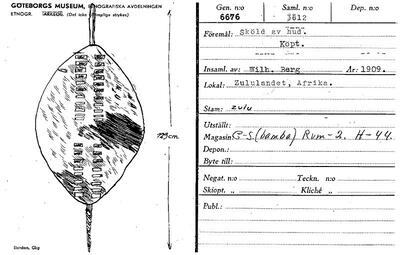 GÖTEBORGS MUSEUM, ETNOGRAFISKA AVDELNINGEN
ETNOGR. ARKEOL. (Det icke tillämpliga strykes)
129 cm.
Elanders, Gbg
Gen. n:o Saml. n:o Dep. n:o
6676 3812
Föremål: Sköld av hud.
Kopt.
Insaml. av: Wilh. Berg År: 1909.
Lokal: Zululandet, Afrika.
Stam: zulu
Utställt:
Magasin G-S.(bamba) Rum-2. H-44.
Depon.:
Byte till:
Negat. n:o Teckn. n:o
Skiopt. „ Kliché „
Publ.: